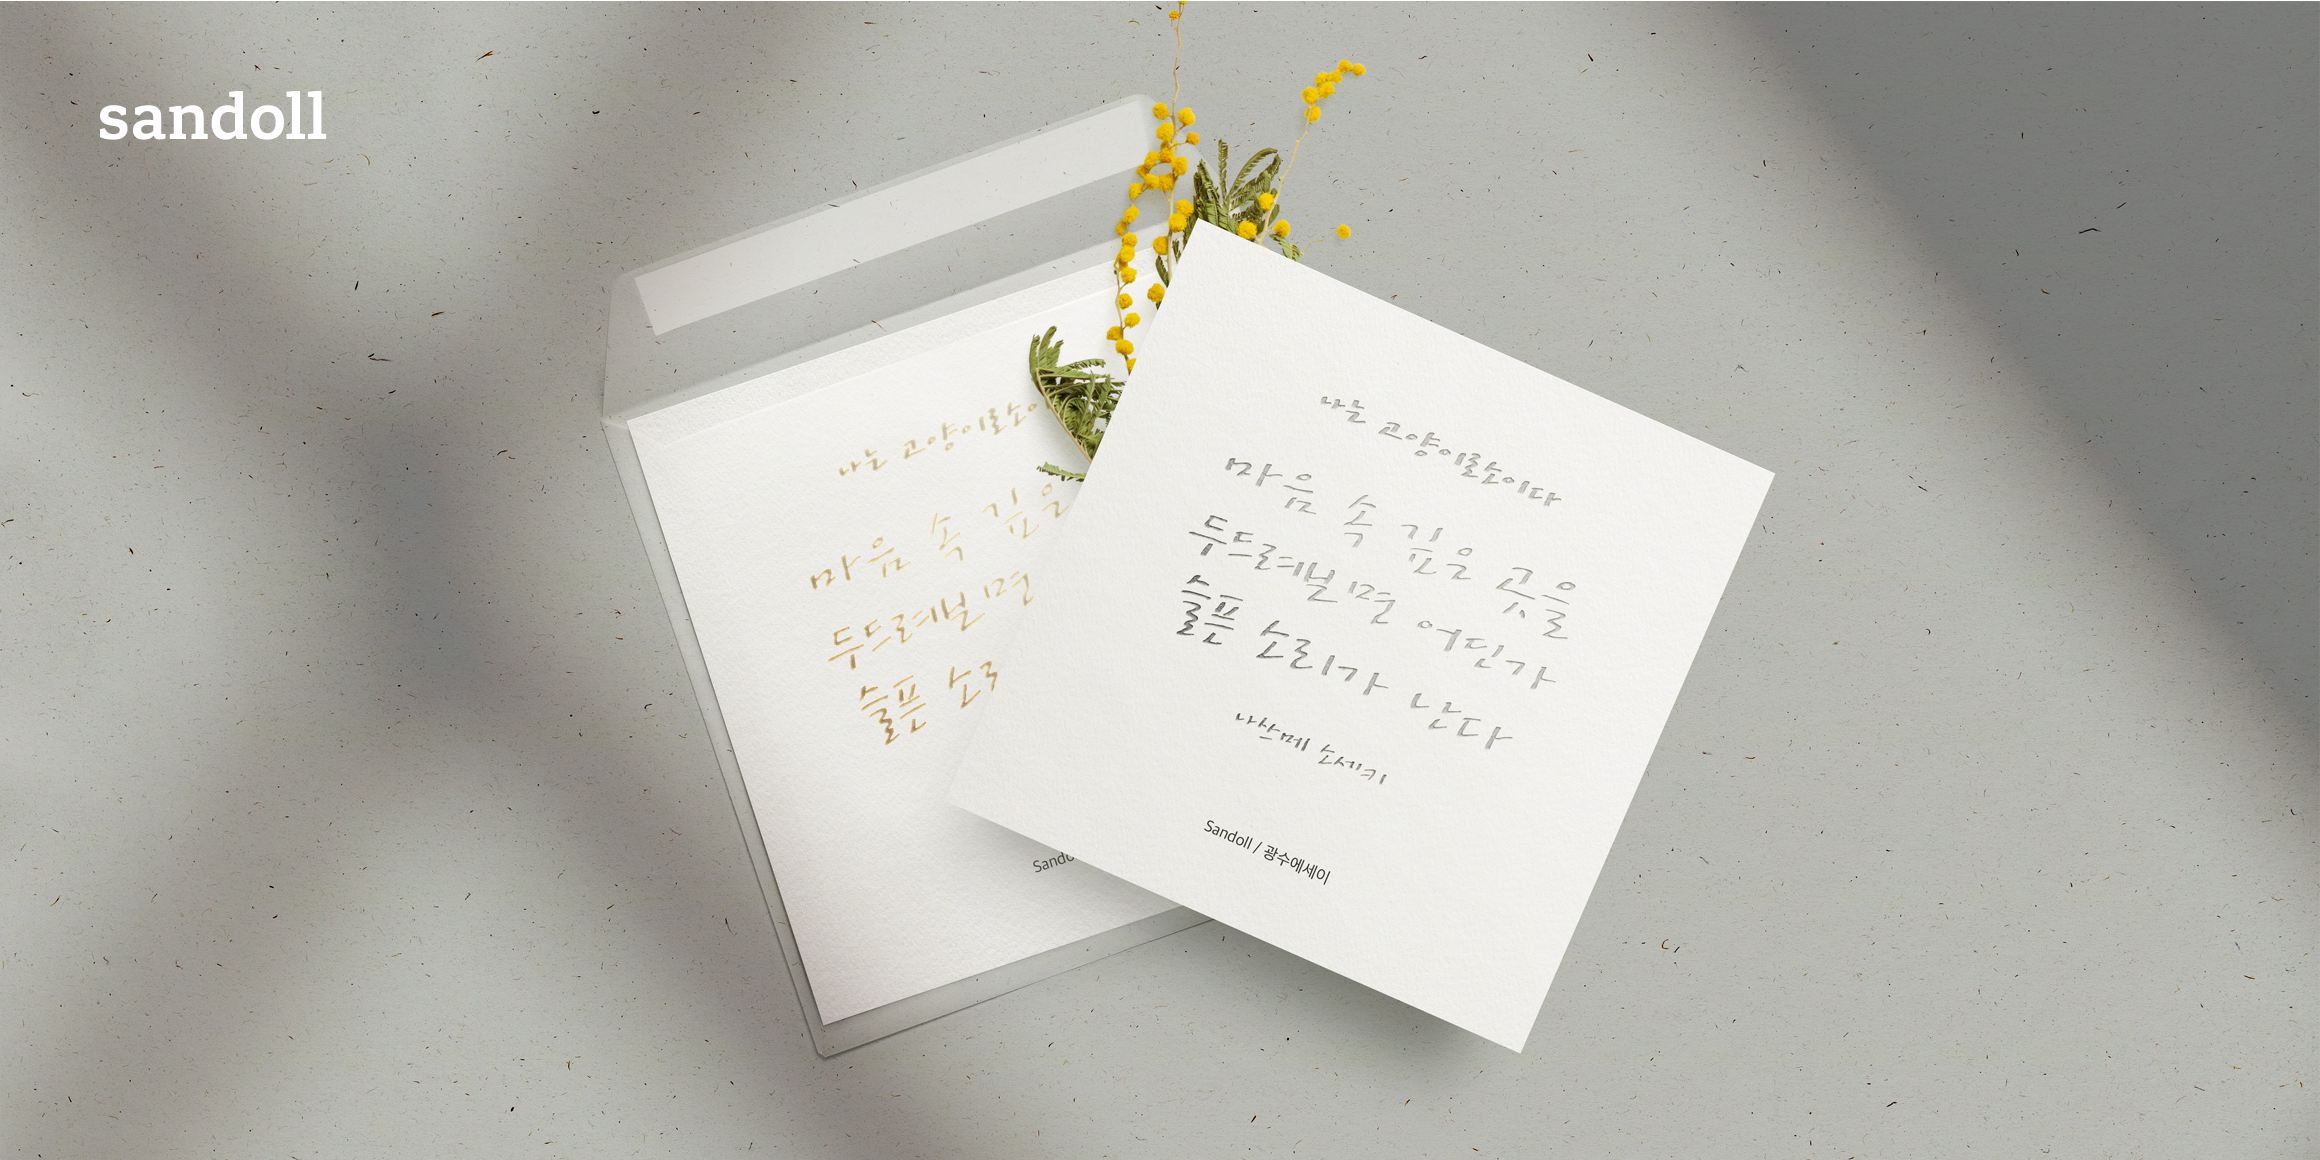 sandoll
나는 고양이로소이
마음 속 깊은
두드려보면
슬픈 소리
Sando
나는 고양이로소이다
마음 속 깊은 곳을
두드려보면 어딘가
슬픈 소리가 난다
나쓰메 소세키
Sandoll / 광수에세이